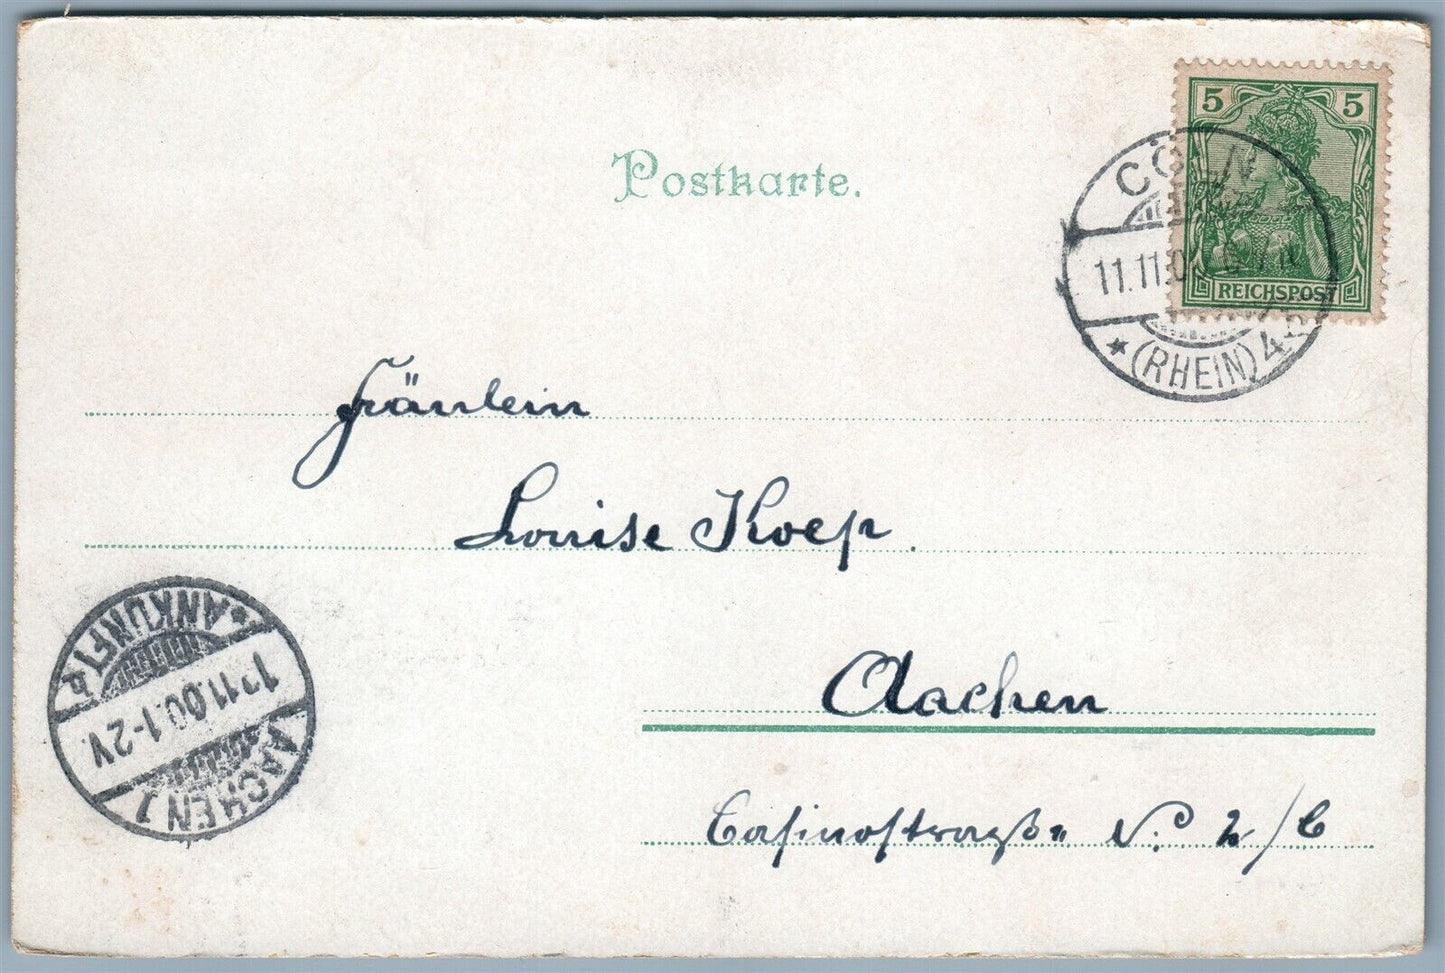 Postkarte.
5 5
REICHSPOST
CÖLN
11.11.0
* (RHEIN) 4
Fräulein
Louise Koep.
Aachen
Casinostrasse No. 2/C
* ANKUNFT.
11.00.1-2V.
AACHEN 1